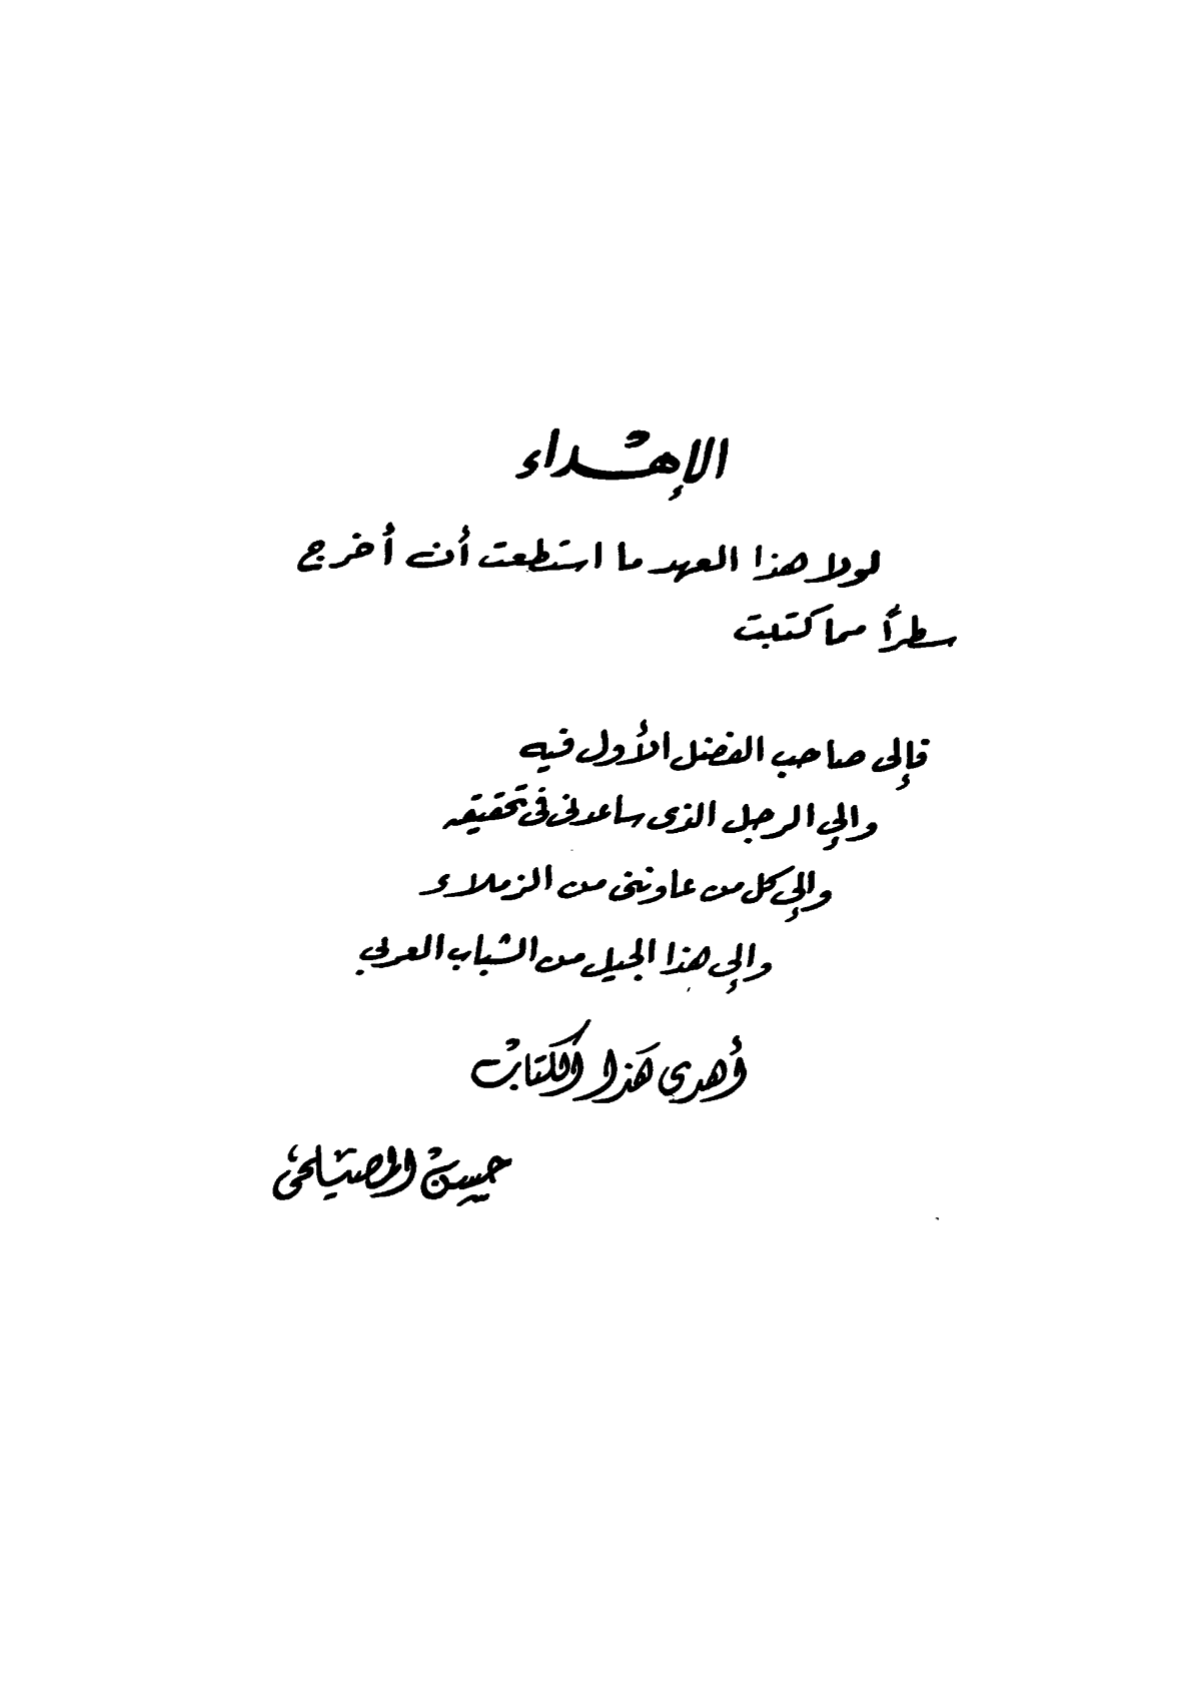 الإهداء
لولا هذا العهد ما استطعت أن أخرج
سطراً مما كتبت
فإلى صاحب الفضل الأول فيه
وإلى الرجل الذى ساعدنى فى تحقيقه
وإلى كل من عاوننى من الزملاء
وإلى هذا الجيل من الشباب العربي
أهدي هذا الكتاب
حسن المصيلحى